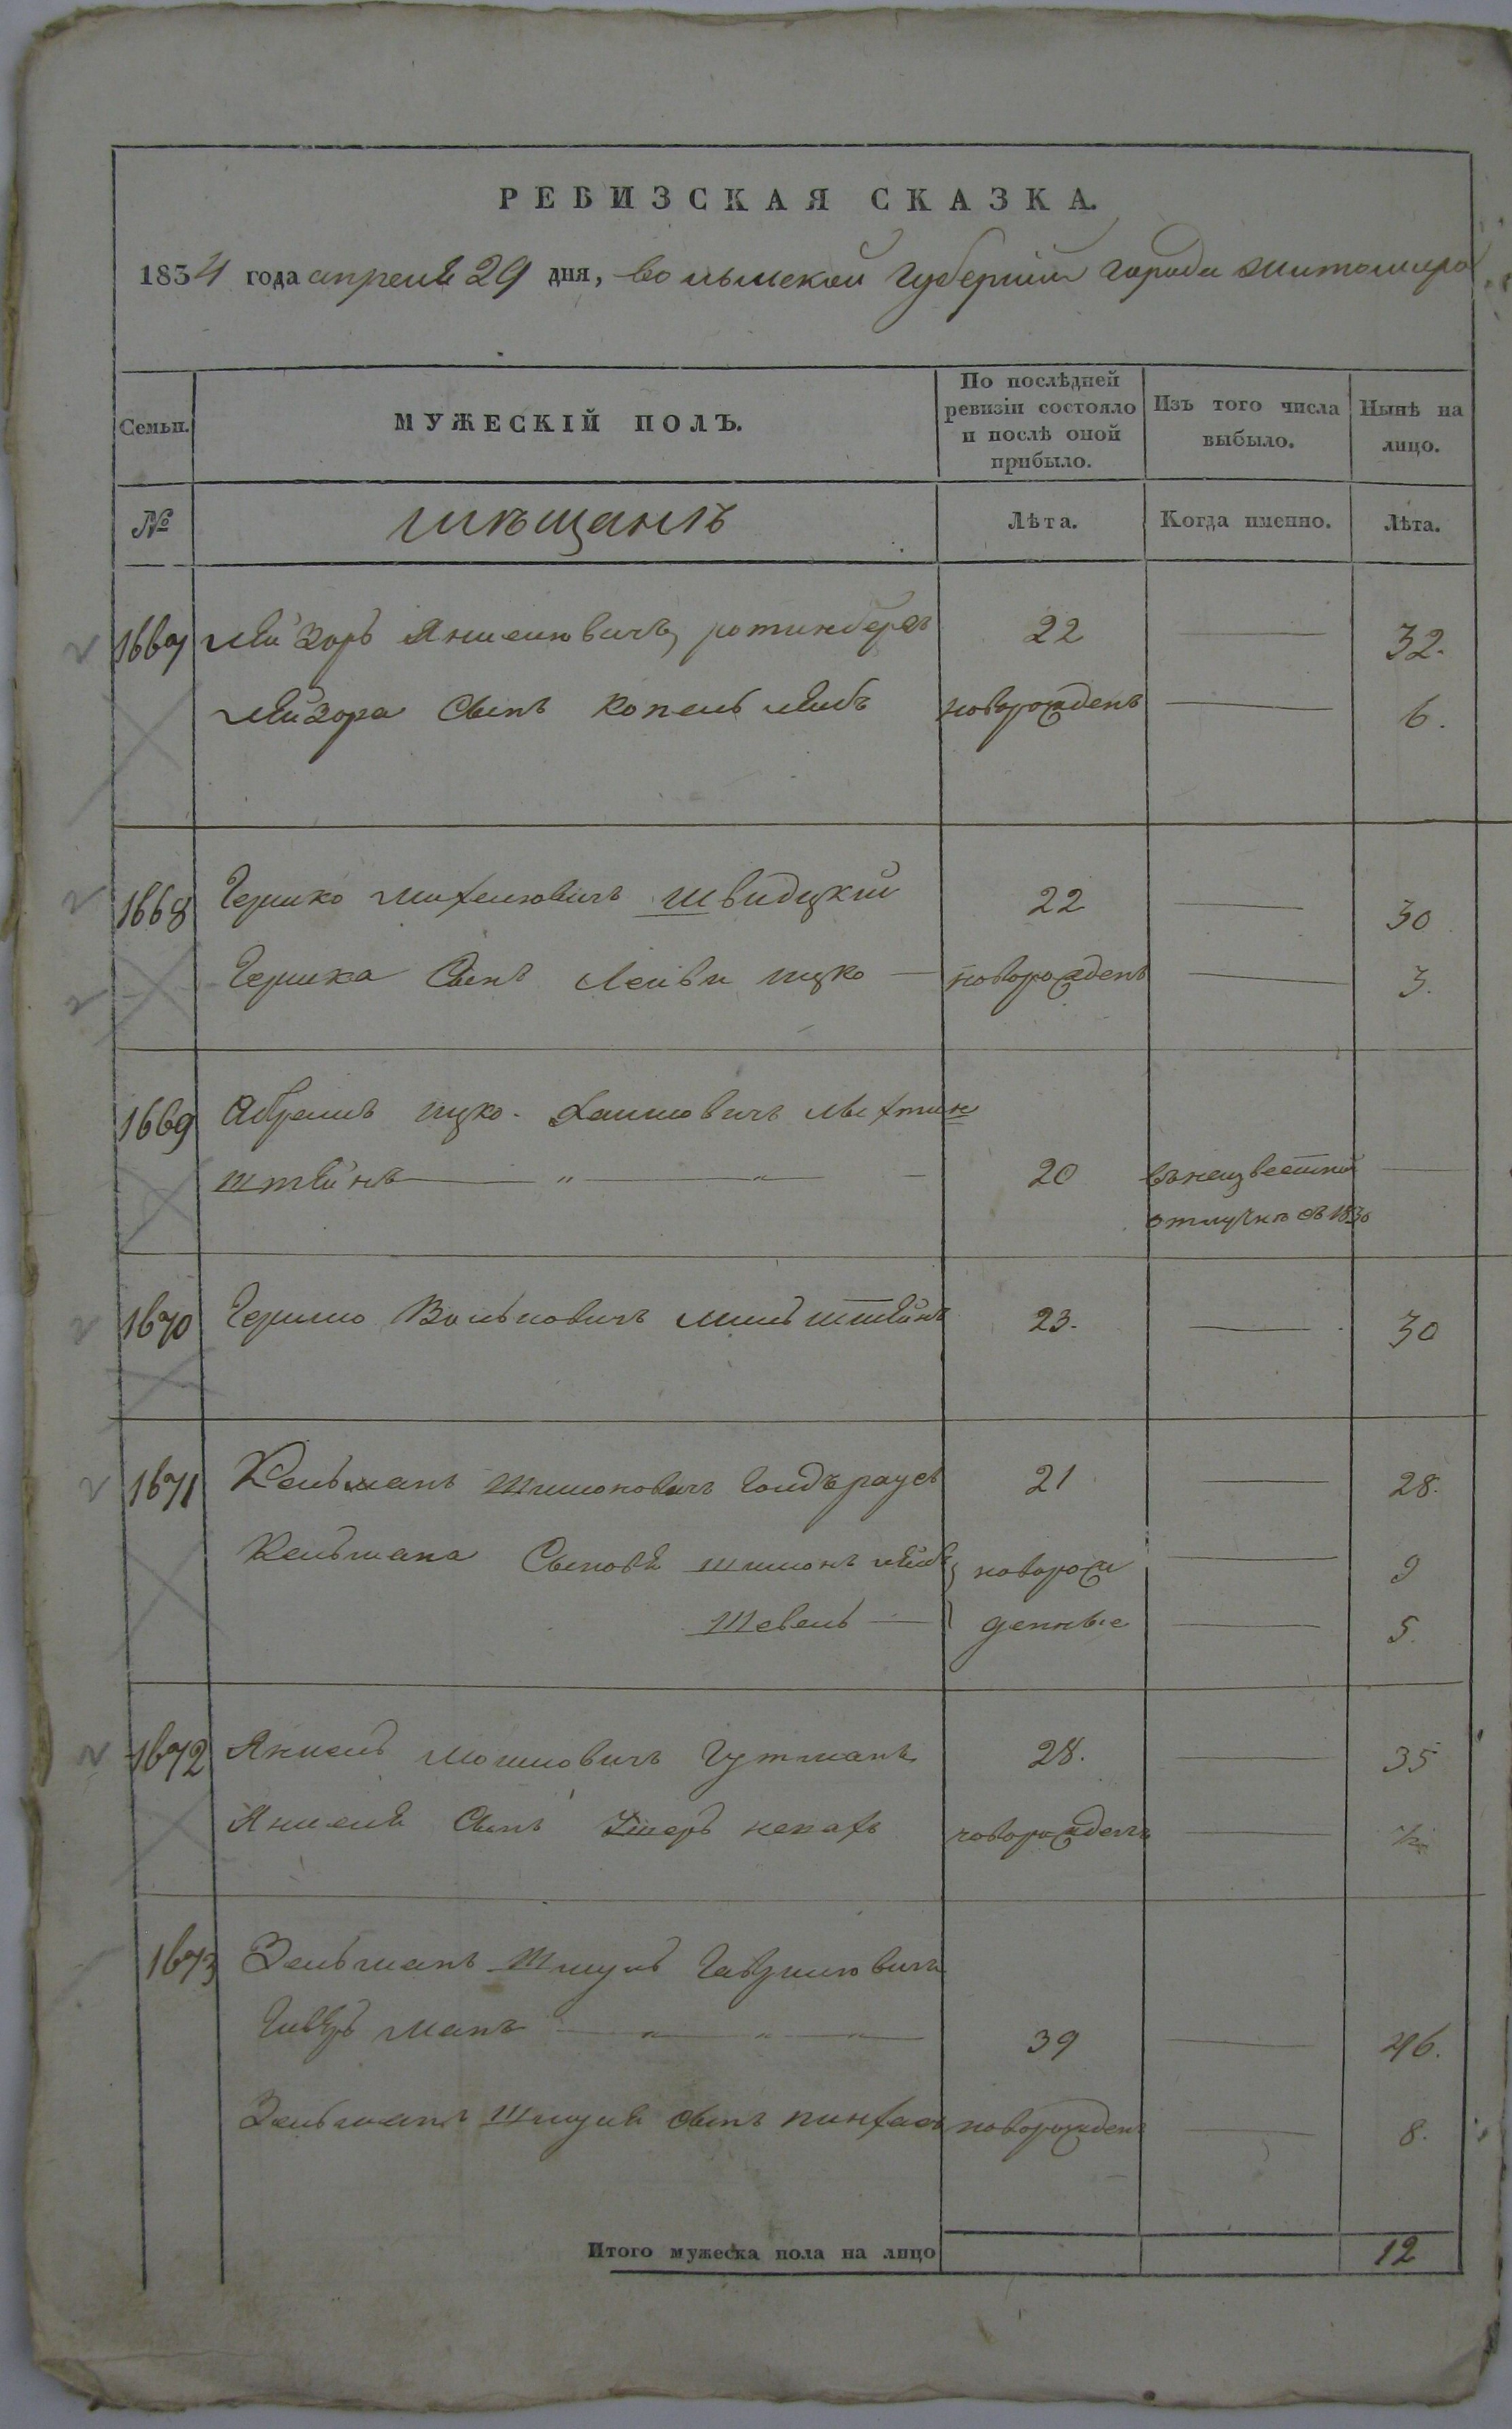 РЕВИЗСКАЯ СКАЗКА.
1834 года апреля 29 дня, волынской губернии города житомира
Семьи.
МУЖЕСКІЙ ПОЛЪ.
По послѣдней ревизіи состояло и послѣ оной прибыло.
Изъ того числа выбыло.
Нынѣ на лицо.
№
мѣщанъ
Лѣта.
Когда именно.
Лѣта.
1667 Лейзоръ Яншелиовичъ ротинберъ 22 — 32.
Лейзора Сынъ Копель лейбъ новорожденъ — 6.
1668 Гершко Михелювичъ швидцкій 22 — 30
Гершка Сынъ Лейви ицко — новорожденъ — 3.
1669 Абрамъ ицко-Хаимовичъ Лихтин
штейнъ — " — " — 20 въ неизвестной —
отлучке съ 1830
1670 Гершко Вольковичъ мильштейнъ 23. — 30
1671 Кельманъ Шимоновичъ Гольдъраусъ 21 — 28.
Кельмана Сыновя шимонъ лейбъ } новорож — 9
Шевель — } денные — 5.
1672 Яншель Мошковичъ Гутманъ 28. — 35
Яншеля Сынъ Ушеръ новорожденъ — ½
1673 Зельманъ Шмуль
манъ — " — " — " — 39 — 46.
Зельманъ Шмуля сынъ пинхасъ новорожденъ — 8.
Итого мужеска пола на лицо 12